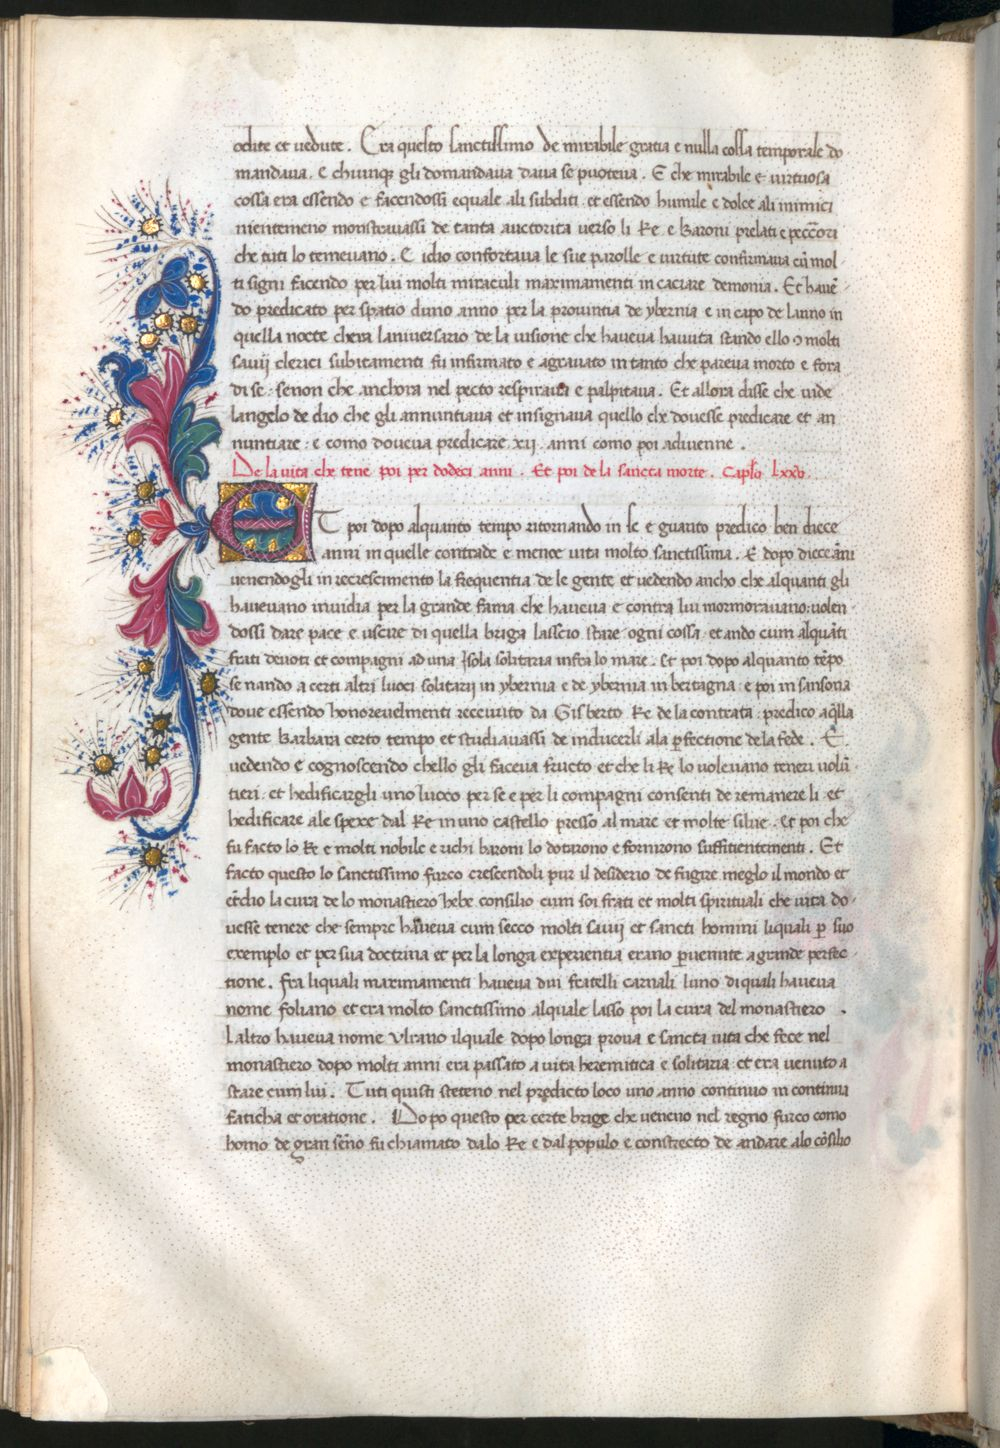 odite et vedute . Era questo sanctissimo de mirabile gratia e nulla cossa temporale do
mandava . e chiunq̃ gli domandava dava se puoteva . E che mirabile e virtuosa
cossa era essendo e facendossi equale ali subditi . et essendo humile e dolce ali inimici
nientemeno monstravassi de tanta auctorita verso li Re . e Baroni prelati e peccõri
che tuti lo temevano . E idio confortava le sue parolle e virtute confirmava cũ mol
ti signi facendo per lui molti miraculi maximamenti in caciare demonia . Et havẽ
do predicato per spatio duno anno per la provintia de ybernia e in capo de lanno in
quella nocte chera laniversario de la visione che haveva havuta stando ello ɔ molti
savij clerici subitamenti fu infirmato e agravato in tanto che pareva morto e fora
di se . senon che anchora nel pecto respirava e palpitava . Et allora disse che vide
langelo de dio che gli annuntiava et insignava quello che dovesse predicare et an
nuntiare . e como doveva predicare . xij . anni como poi advenne .
De la vita che tene poi per dodeci anni . Et poi de la sancta morte . Capl̃o lxxv .
ET poi dopo alquanto tempo ritornando in se e guarito predico ben diece
anni in quelle contrade e menoe vita molto sanctissima . E dopo diece ãni
venendogli in recrescimento la frequentia de le gente et vedendo ancho che alquanti gli
havevano invidia per la grande fama che haveva e contra lui mormoravano : volen
dossi dare pace e uscire di quella briga lasscio stare ogni cossa . et ando cum alquãti
frati devoti et compagni ad una Isola solitaria infra lo mare . Et poi dopo alquanto tẽpo
se nando a certi altri luoci solitarij in ybernia e de ybernia in bertagna . e poi in sansona
dove essendo honorevelmenti recevuto da Gisberto Re de la contrata . predico aq̃lla
gente Barbara certo tempo et studiavassi de inducerli ala pfectione de la fede . E
vedendo e cognoscendo chello gli faceva fructo et che li Re lo volevano teneri volũ
tieri . et hedificargli uno luoco per se e per li compagni consenti de remanere li . et
hedificare ale spexe dal Re in uno castello presso al mare et molte silve . Et poi che
fu facto lo Re e molti nobile e richi baroni lo dotirono e fornirono suffitientementi . Et
facto questo lo sanctissimo furco crescendoli pur il desiderio de fugire meglo il mondo et
etc̃dio la cura de lo monastiero hebe consilio cum soi frati et molti spirituali che vita do
vesse tenere che sempre haveva cum secco molti savij et sancti homini liquali p suo
exemplo et per sua doctrina et per la longa experientia erano pvenute a grande perfec
tione . Fra liquali maximamenti haveva dui fratelli carnali . luno di quali haveva
nome foliano et era molto sanctissimo alquale lasso poi la cura del monastiero .
laltro haveva nome Vlrano ilquale dopo longa prova e sancta vita che fece nel
monastiero dopo molti anni era passato a vita heremitica e solitaria et era venuto a
stare cum lui . Tuti quisti steteno nel predicto loco uno anno continuo in continua
faticha et oratione . Dopo questo per certe brige che veneno nel regno furco como
homo de gran senno fu chiamato dalo Re e dal populo e constrecto de andare alo cõsilio